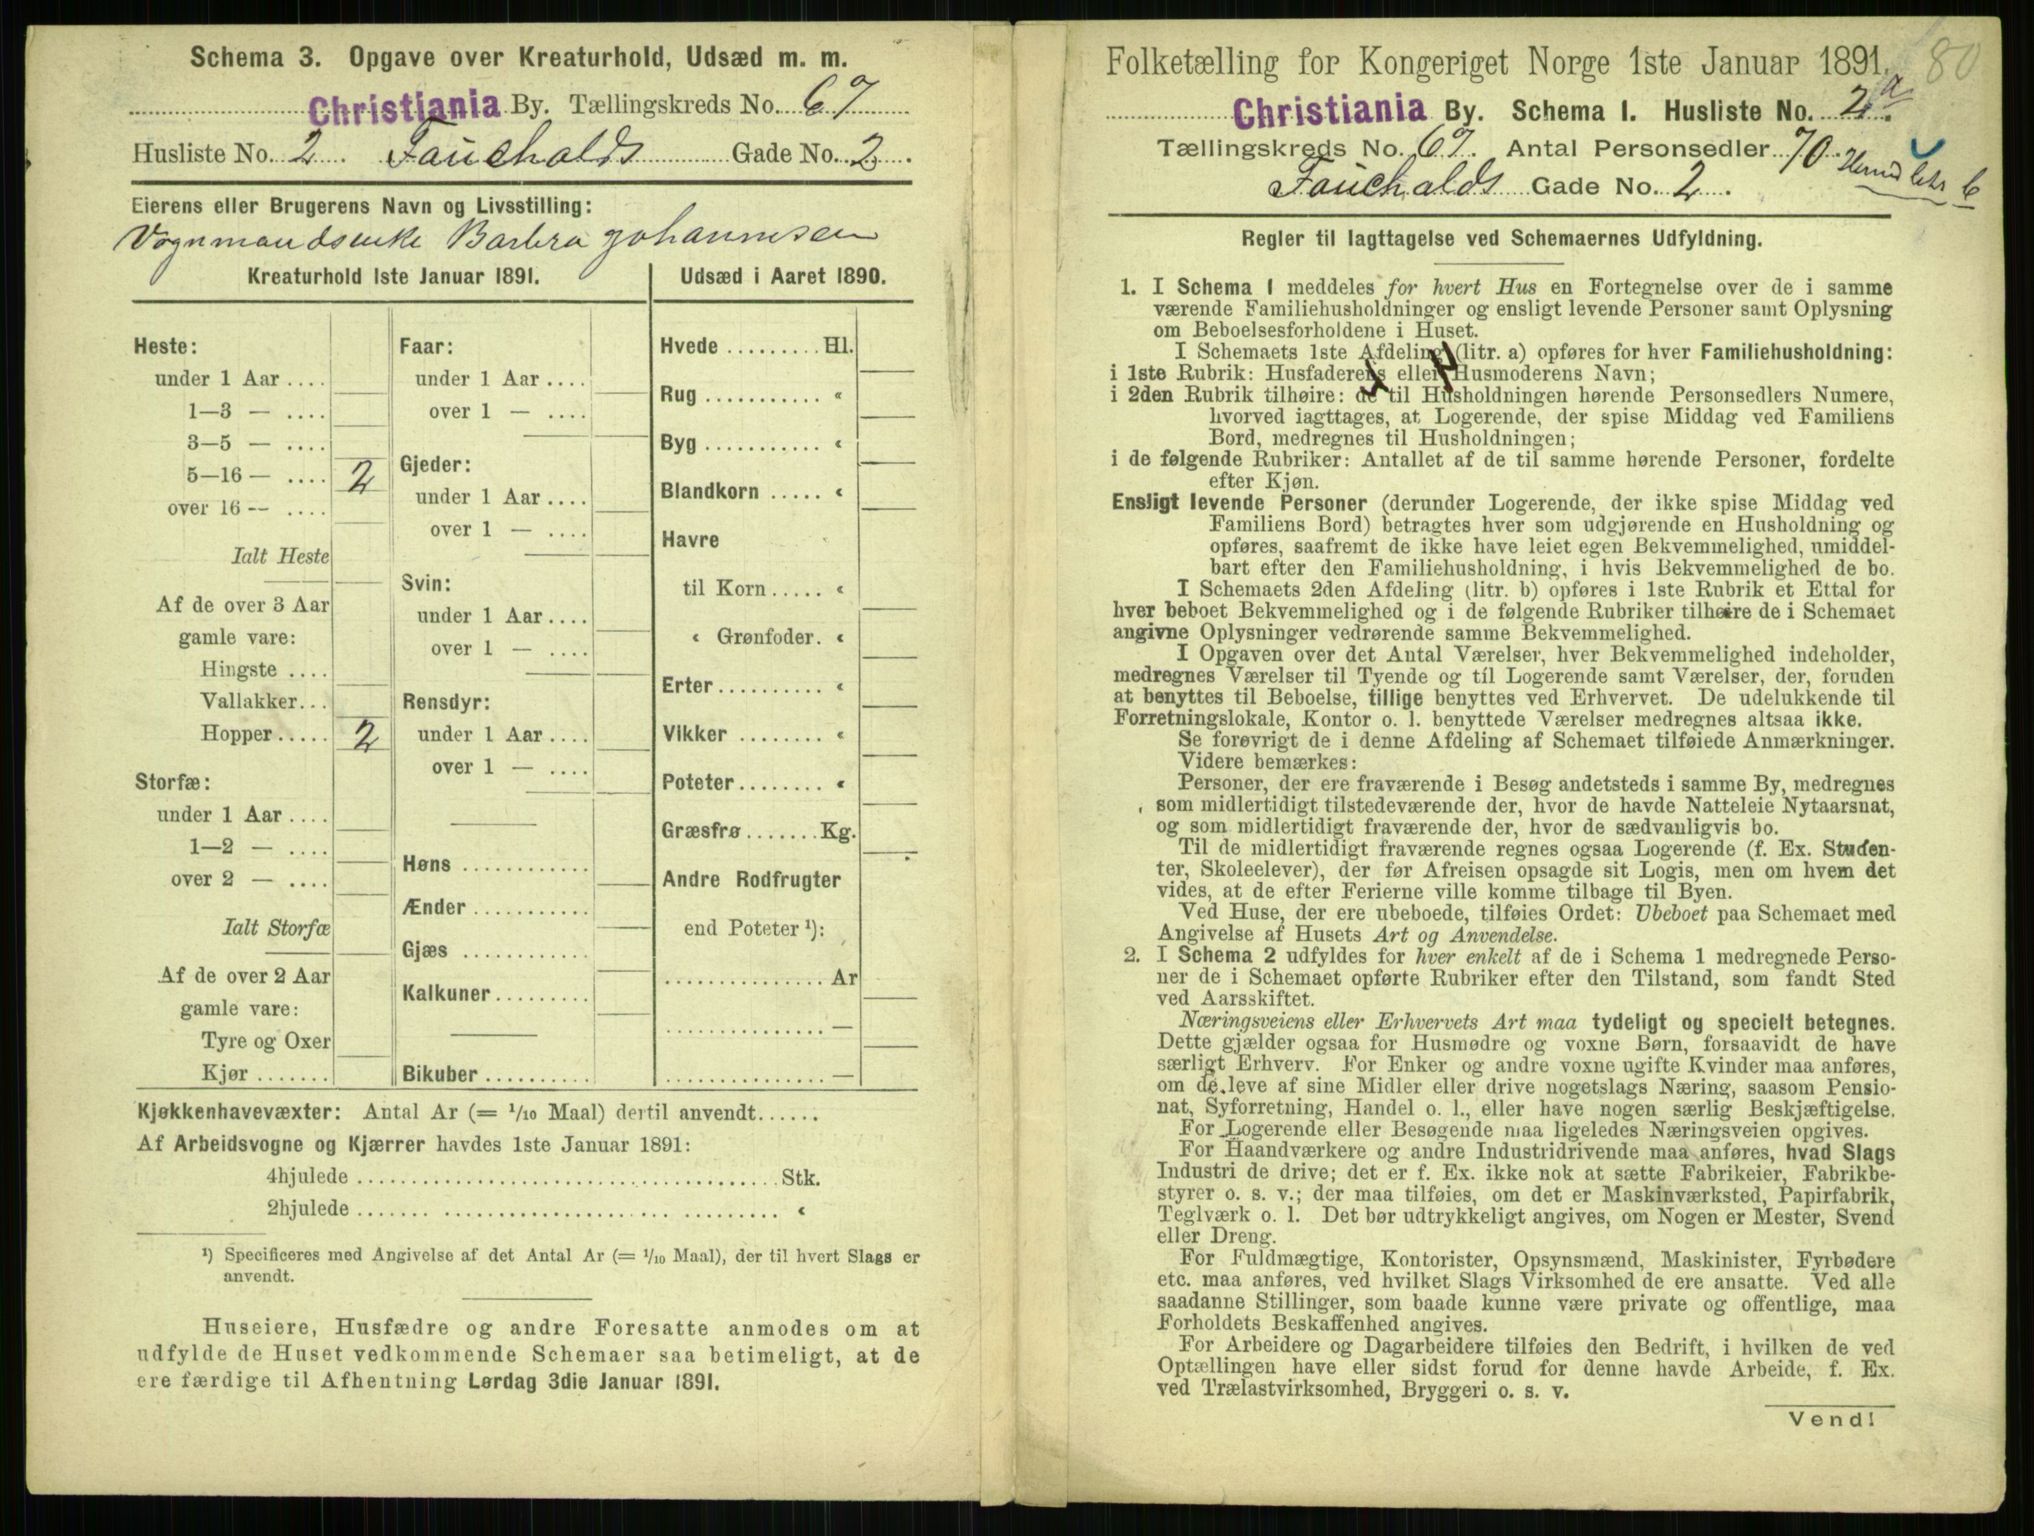 Schema 3. Opgave over Kreaturhold, Udsæd m. m.
Christiania By. Tællingskreds No. 67
Husliste No. 2 Fauchalds Gade No. 2.
Eierens eller Brugerens Navn og Livsstilling:
Vognmandsenke Barbra Johannesen
Kreaturhold 1ste Januar 1891.
Heste:
under 1 Aar ....
1—3 — ....
3—5 — ....
5—16 — .... 2
over 16 — ....
Ialt Heste
Af de over 3 Aar
gamle vare:
Hingste ....
Vallakker...
Hopper ..... 2
Storfæ:
under 1 Aar ....
1—2 — ....
over 2 — ....
Ialt Storfæ
Af de over 2 Aar
gamle vare:
Tyre og Oxer
Kjør .......
Faar:
under 1 Aar ....
over 1 — ....
Gjeder:
under 1 Aar ....
over 1 — ....
Svin:
under 1 Aar ....
over 1 — ....
Rensdyr:
under 1 Aar ....
over 1 — ....
Høns ............
Ænder ...........
Gjæs ............
Kalkuner .........
Bikuber ..........
Udsæd i Aaret 1890.
Hvede ......... Hl.
Rug ........... «
Byg ........... «
Blandkorn ..... «
Havre
til Korn ..... «
« Grønfoder. «
Erter .......... «
Vikker ........ «
Poteter ........ «
Græsfrø ....... Kg.
Andre Rodfrugter
end Poteter ¹):
............... Ar
............... —
............... —
Kjøkkenhavevæxter: Antal Ar (= 1/10 Maal) dertil anvendt......
Af Arbeidsvogne og Kjærrer havdes 1ste Januar 1891:
4hjulede ................................ Stk.
2hjulede ................................ «
¹) Specificeres med Angivelse af det Antal Ar (= 1/10 Maal), der til hvert Slags er
anvendt.
Huseiere, Husfædre og andre Foresatte anmodes om at
udfylde de Huset vedkommende Schemaer saa betimeligt, at de
ere færdige til Afhentning Lørdag 3die Januar 1891.
80
Folketælling for Kongeriget Norge 1ste Januar 1891.
Christiania By. Schema 1. Husliste No. 2a.
Tællingskreds No. 67. Antal Personsedler 70
Fauchalds Gade No. 2.
Regler til Iagttagelse ved Schemaernes Udfyldning.
1. I Schema 1 meddeles for hvert Hus en Fortegnelse over de i samme
værende Familiehusholdninger og ensligt levende Personer samt Oplysning
om Beboelsesforholdene i Huset.
I Schemaets 1ste Afdeling (litr. a) opføres for hver Familiehusholdning:
i 1ste Rubrik: Husfaderens eller Husmoderens Navn;
i 2den Rubrik tilhøire: de til Husholdningen hørende Personsedlers Numere,
hvorved iagttages, at Logerende, der spise Middag ved Familiens
Bord, medregnes til Husholdningen;
i de følgende Rubriker: Antallet af de til samme hørende Personer, fordelte
efter Kjøn.
Ensligt levende Personer (derunder Logerende, der ikke spise Middag ved
Familiens Bord) betragtes hver som udgjørende en Husholdning og
opføres, saafremt de ikke have leiet egen Bekvemmelighed, umiddel-
bart efter den Familiehusholdning, i hvis Bekvemmelighed de bo.
I Schemaets 2den Afdeling (litr. b) opføres i 1ste Rubrik et Ettal for
hver beboet Bekvemmelighed og i de følgende Rubriker tilhøire de i Schemaet
angivne Oplysninger vedrørende samme Bekvemmelighed.
I Opgaven over det Antal Værelser, hver Bekvemmelighed indeholder,
medregnes Værelser til Tyende og til Logerende samt Værelser, der, foruden
at benyttes til Beboelse, tillige benyttes ved Erhvervet. De udelukkende til
Forretningslokale, Kontor o. l. benyttede Værelser medregnes altsaa ikke.
Se forøvrigt de i denne Afdeling af Schemaet tilføiede Anmærkninger.
Videre bemærkes:
Personer, der ere fraværende i Besøg andetsteds i samme By, medregnes
som midlertidigt tilstedeværende der, hvor de havde Natteleie Nytaarsnat,
og som midlertidigt fraværende der, hvor de sædvanligvis bo.
Til de midlertidigt fraværende regnes ogsaa Logerende (f. Ex. Studen-
ter, Skoleelever), der før Afreisen opsagde sit Logis, men om hvem det
vides, at de efter Ferierne ville komme tilbage til Byen.
Ved Huse, der ere ubeboede, tilføies Ordet: Ubeboet paa Schemaet med
Angivelse af Husets Art og Anvendelse.
2. I Schema 2 udfyldes for hver enkelt af de i Schema 1 medregnede Perso-
ner de i Schemaet opførte Rubriker efter den Tilstand, som fandt Sted
ved Aarsskiftet.
Næringsveiens eller Erhvervets Art maa tydeligt og specielt betegnes.
Dette gjælder ogsaa for Husmødre og voxne Børn, forsaavidt de have
særligt Erhverv. For Enker og andre voxne ugifte Kvinder maa anføres,
om de leve af sine Midler eller drive nogetslags Næring, saasom Pensio-
nat, Syforretning, Handel o. l., eller have nogen særlig Beskjæftigelse.
For Logerende eller Besøgende maa ligeledes Næringsveien opgives.
For Haandværkere og andre Industridrivende maa anføres, hvad Slags
Industri de drive; det er f. Ex. ikke nok at sætte Fabrikeier, Fabrikbe-
styrer o. s. v.; der maa tilføies, om det er Maskinværksted, Papirfabrik,
Teglværk o. l. Det bør udtrykkeligt angives, om Nogen er Mester, Svend
eller Dreng.
For Fuldmægtige, Kontorister, Opsynsmænd, Maskinister, Fyrbødere
etc. maa anføres, ved hvilket Slags Virksomhed de ere ansatte. Ved alle
saadanne Stillinger, som baade kunne være private og offentlige, maa
Forholdets Beskaffenhed angives.
For Arbeidere og Dagarbeidere tilføies den Bedrift, i hvilken de ved
Optællingen have eller sidst forud for denne havde Arbeide, f. Ex.
ved Trælastvirksomhed, Bryggeri o. s. v.
Vend!